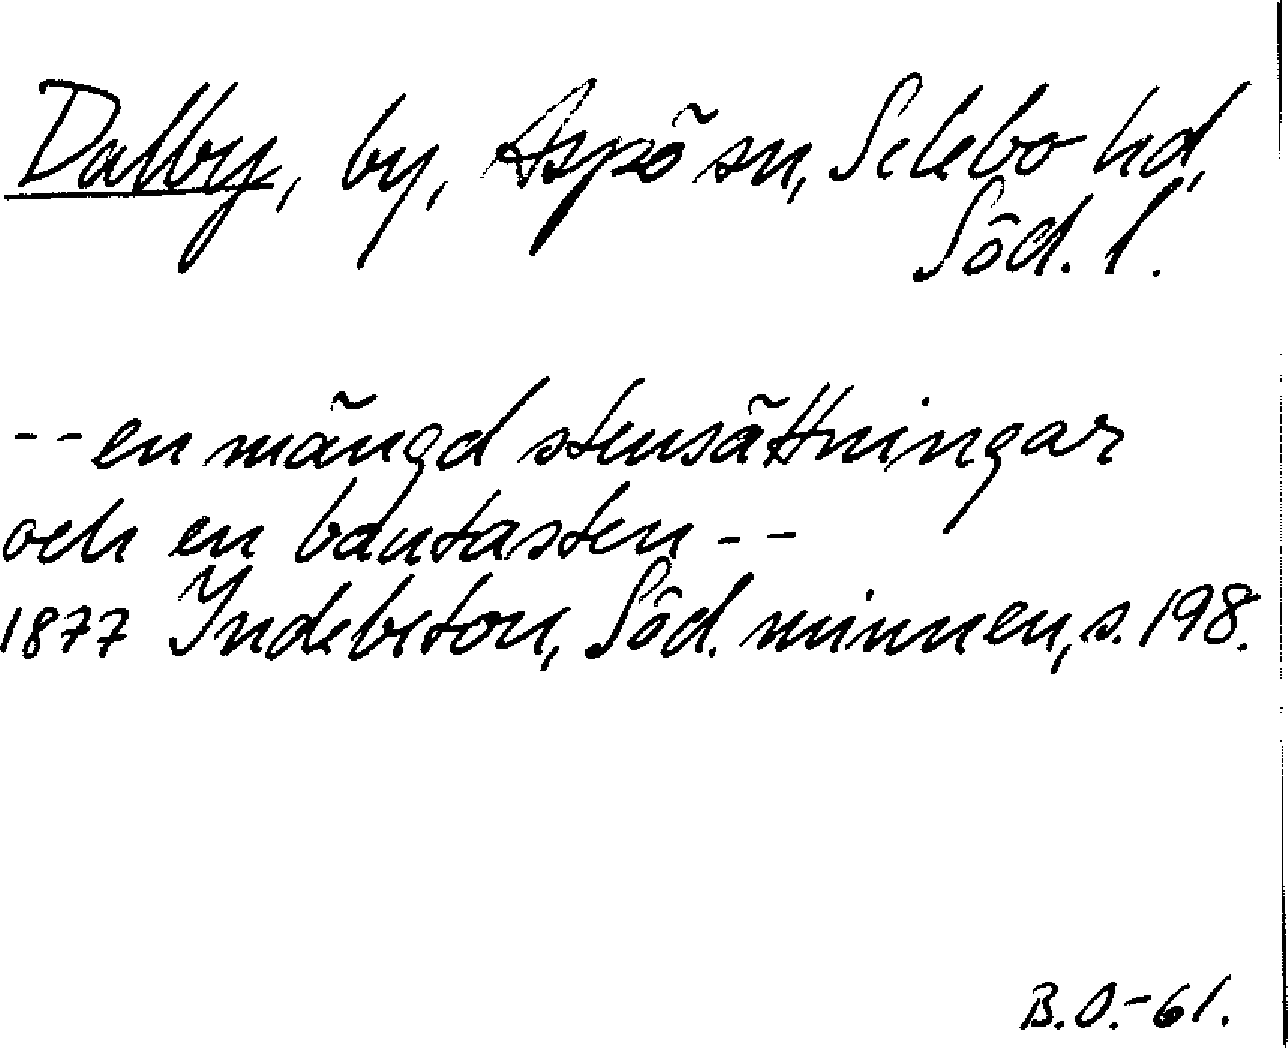 Dalby, by, Aspö sn, Selebo hd,
Söd. l.
-- en mängd stensättningar
och en bautasten --
1877 Indebetou, Söd. minnen, s. 198.
B.O.-61.